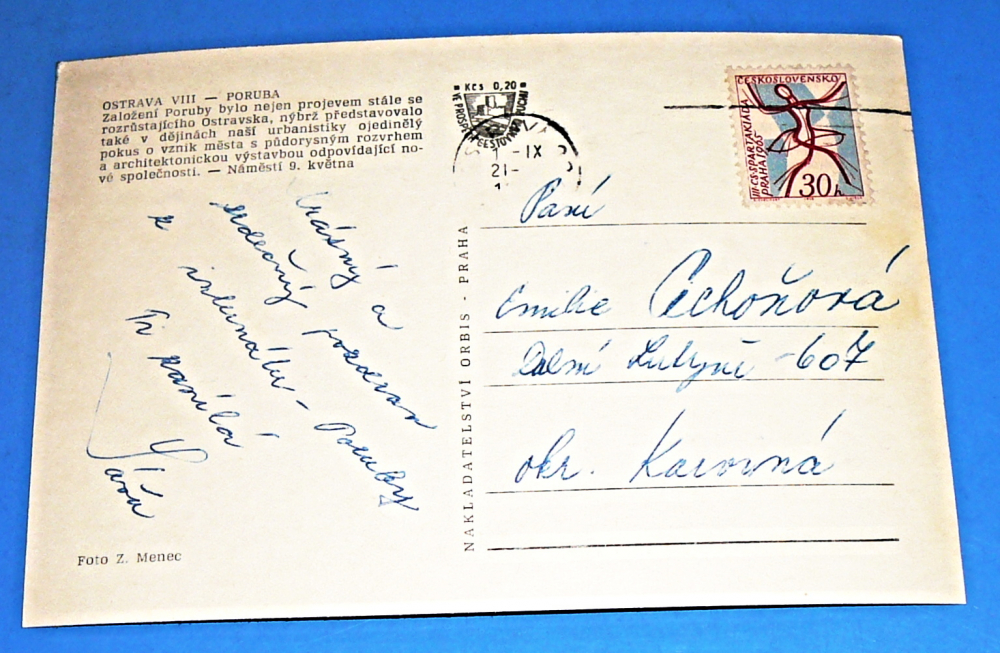 OSTRAVA VIII — PORUBA
Založení Poruby bylo nejen projevem stále se
rozrůstajícího Ostravska, nýbrž představovalo
také v dějinách naší urbanistiky ojedinělý
pokus o vznik města s půdorysným rozvrhem
a architektonickou výstavbou odpovídající no-
vé společnosti. — Náměstí 9. května
Krásný a
srdečný pozdrav
z internátu - Poruby
Ti posílá
Foto Z. Menec
NAKLADATELSTVÍ ORBIS - PRAHA
KCS 0,20
-IX
21-
ČESKOSLOVENSKO
III·CS·SPARTAKIÁDA
PRAHA 1965
30h
Paní
Emilie Cichoňová
Dolní Lutyně - 607
okr. Karviná